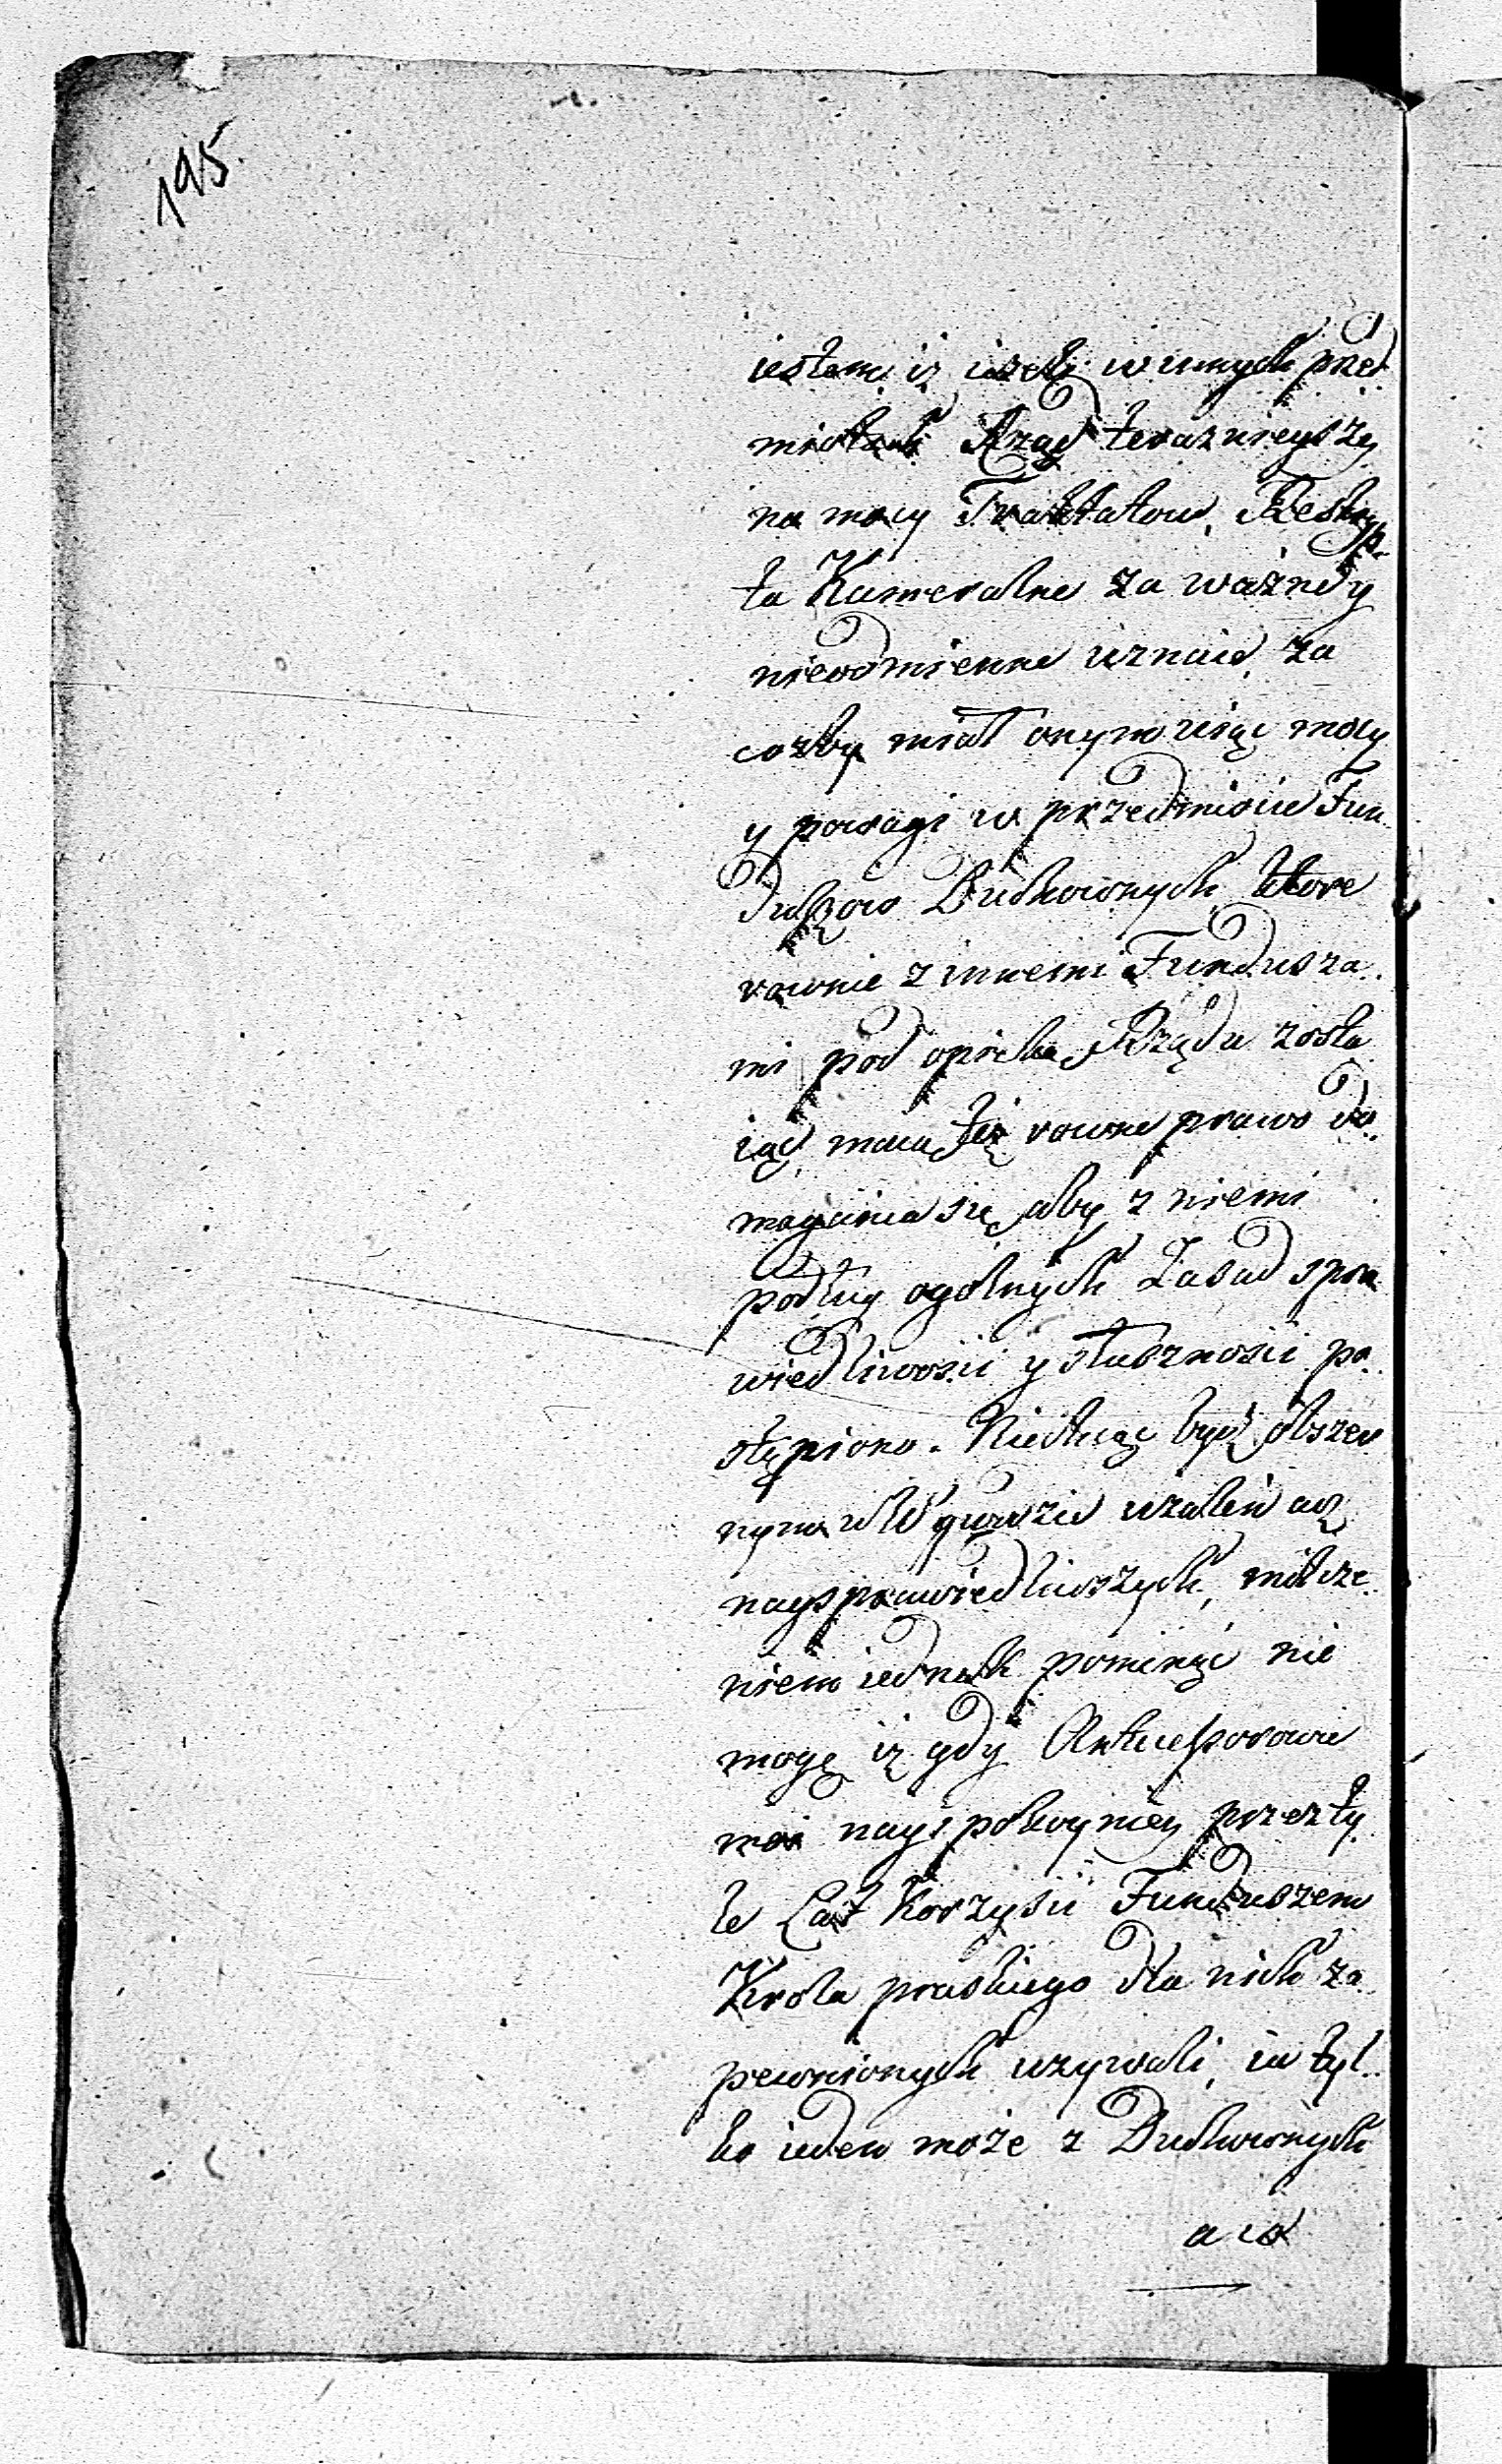 195.
iestem iż ieżeli w innych przed
miotach Rząd teraznieyszy
na mocy Traktatow, Reskryp
ta Kameralne za ważne y
nieodmienne uznaie, za
cożby miał onym uiąc mocy
y powagi w przedmiocie Fun
duszow Duchownych, ktore
rownie z innemi Fundusza
mi pod opieką Rządu zosta
iąc, maią też rowne prawo do
magania się, aby z niemi
podług ogolnych Zasad spra
wiedliwości y słuszności po
stąpiono. Niechcąc być obszer
nym w użalen acz
nayspraw­iedliwszych, milcze
niem iednak pominąć nie
mogę iż gdy Antecessorowie
moi nayspokoyniey przez ty
le Lat korzyści Funduszem
Krola pruskiego dla nich za
pewnionych używali, ia tyl
ko ieden może z Duchownych
a co